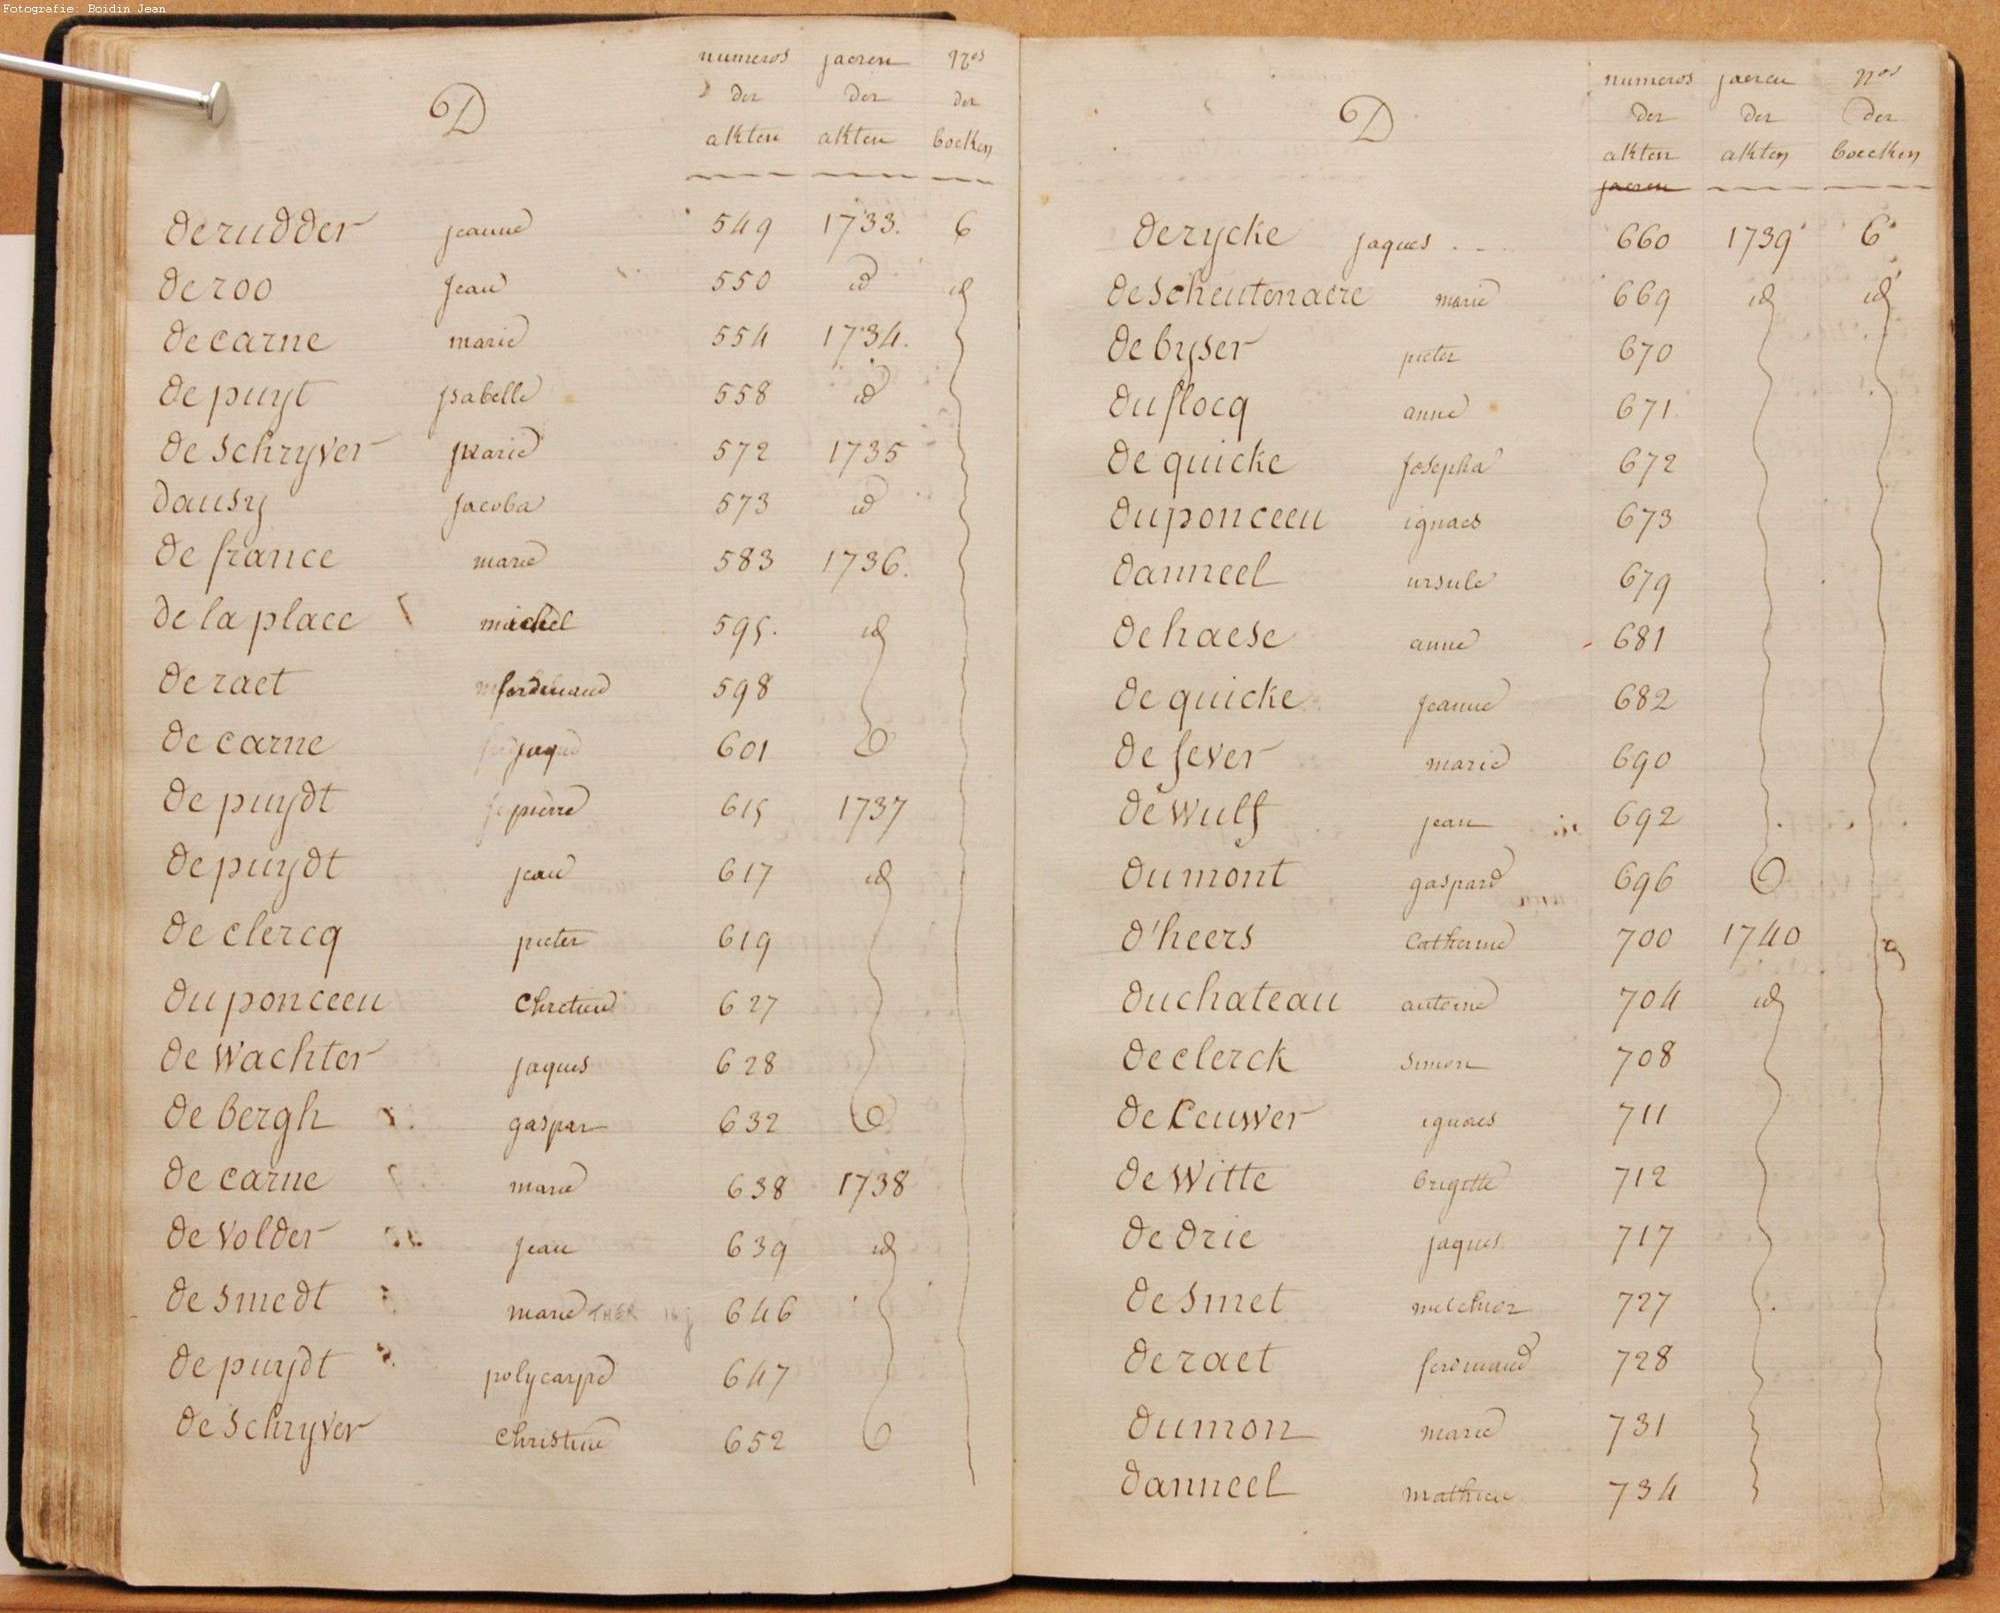 Fotografie: Boidin Jean
D
numeros jaeren nos
der der der
akten akten boeken
de rudder jeanne 549 1733. 6
de roo jean 550 id id
de carne marie 554 1734.
de puyt ysabelle 558 id
de schryver marie 572 1735
dausy jacoba 573 id
de france marie 583 1736.
de la place michel 595. id
de raet ferdinand 598
de carne jaque 601
de puydt pierre 615 1737
de puydt jean 617 id
de clercq pieter 619
du ponceeu Chretien 627
de Wachter jaques 628
de bergh gaspar 632
de carne marie 638 1738
de Volder jean 639 id
de smedt marie THER 646
de puydt polycarpe 647
de schryver Christine 652
D
numeros jaeren nos
der der der
akten akten boecken
jaeren
de rycke jaques 660 1739 6
de scheutenaere marie 669 id id
de byser pieter 670
du flocq anne 671
de quicke josepha 672
du ponceeu ignaes 673
danneel ursule 679
de haese anne 681
de quicke jeanne 682
de fever marie 690
de Wulf jean 692
du mont gaspard 696
d'heers Catherine 700 1740
du chateau antoine 704 id
de clerck Simon 708
de Ceuwer ignaes 711
de Witte brigitte 712
de drie jaques 717
de smet melchior 727
de raet ferdinand 728
du mon marie 731
danneel mathieu 734